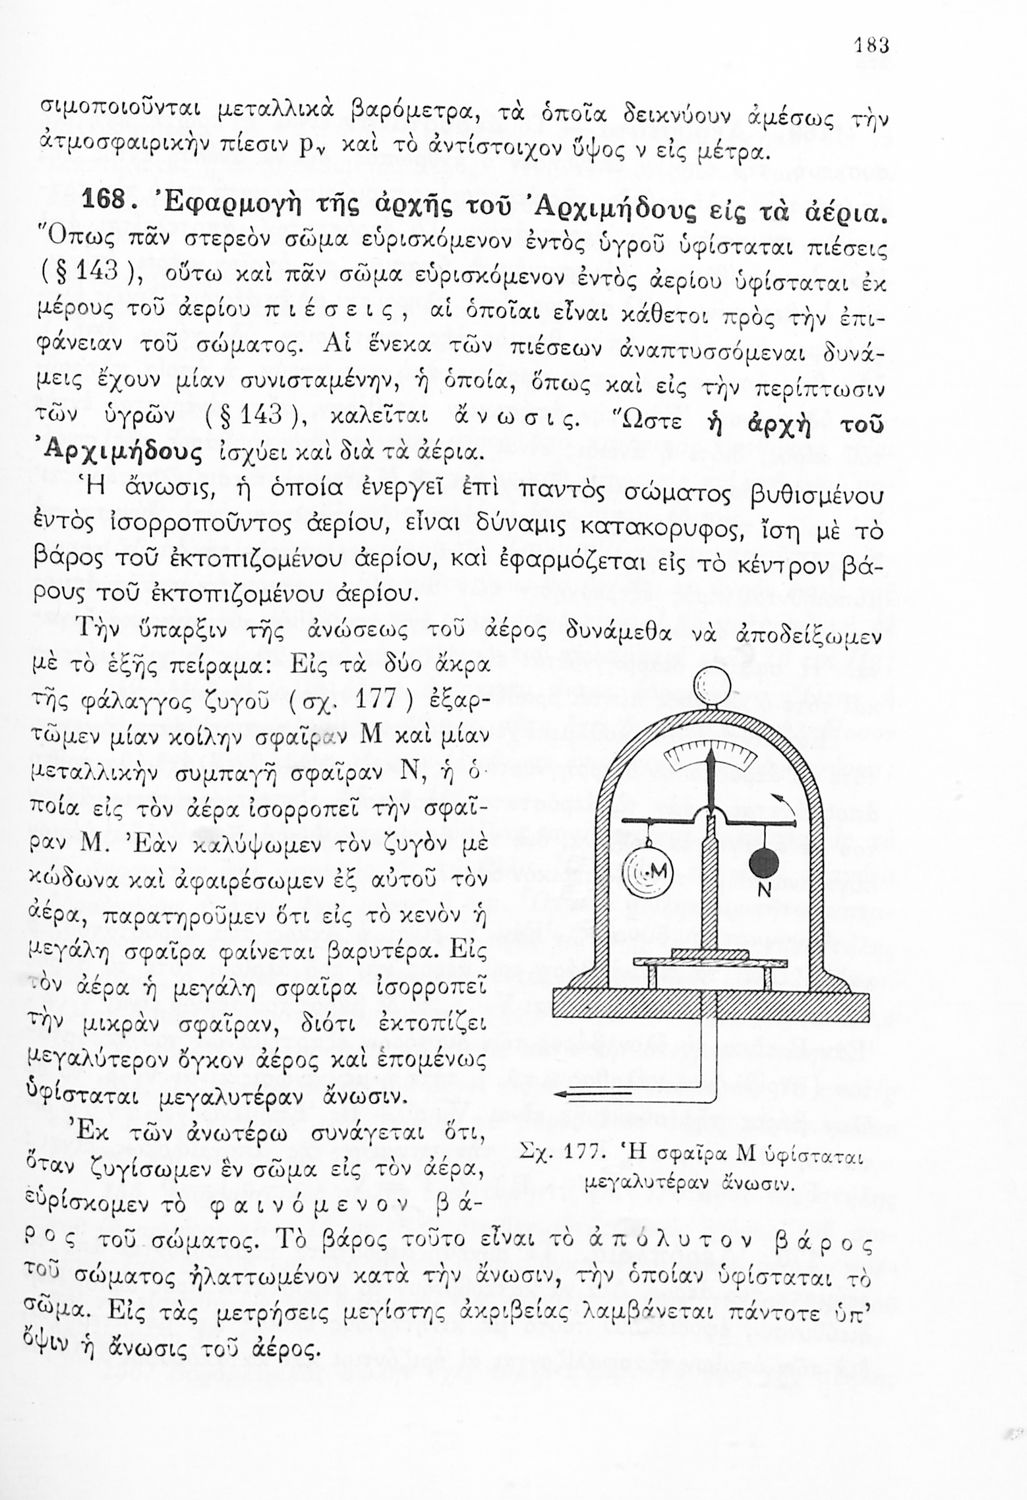 183
σιμοποιοῦνται μεταλλικὰ βαρόμετρα, τὰ ὁποῖα δεικνύουν ἀμέσως τὴν
ἀτμοσφαιρικὴν πίεσιν pν καὶ τὸ ἀντίστοιχον ὕψος ν εἰς μέτρα.
168. Ἐφαρμογὴ τῆς ἀρχῆς τοῦ Ἀρχιμήδους εἰς τὰ ἀέρια.
Ὅπως πᾶν στερεὸν σῶμα εὑρισκόμενον ἐντὸς ὑγροῦ ὑφίσταται πιέσεις
(§ 143), οὕτω καὶ πᾶν σῶμα εὑρισκόμενον ἐντὸς ἀερίου ὑφίσταται ἐκ
μέρους τοῦ ἀερίου πιέσεις, αἱ ὁποῖαι εἶναι κάθετοι πρὸς τὴν ἐπι-
φάνειαν τοῦ σώματος. Αἱ ἕνεκα τῶν πιέσεων ἀναπτυσσόμεναι δυνά-
μεις ἔχουν μίαν συνισταμένην, ἡ ὁποία, ὅπως καὶ εἰς τὴν περίπτωσιν
τῶν ὑγρῶν (§ 143), καλεῖται ἄνωσις. Ὥστε ἡ ἀρχὴ τοῦ
Ἀρχιμήδους ἰσχύει καὶ διὰ τὰ ἀέρια.
Ἡ ἄνωσις, ἡ ὁποία ἐνεργεῖ ἐπὶ παντὸς σώματος βυθισμένου
ἐντὸς ἰσορροποῦντος ἀερίου, εἶναι δύναμις κατακόρυφος, ἴση μὲ τὸ
βάρος τοῦ ἐκτοπιζομένου ἀερίου, καὶ ἐφαρμόζεται εἰς τὸ κέντρον βά-
ρους τοῦ ἐκτοπιζομένου ἀερίου.
Τὴν ὕπαρξιν τῆς ἀνώσεως τοῦ ἀέρος δυνάμεθα νὰ ἀποδείξωμεν
μὲ τὸ ἑξῆς πείραμα: Εἰς τὰ δύο ἄκρα
τῆς φάλαγγος ζυγοῦ (σχ. 177) ἐξαρ-
τῶμεν μίαν κοίλην σφαῖραν M καὶ μίαν
μεταλλικὴν συμπαγῆ σφαῖραν N, ἡ ὁ-
ποία εἰς τὸν ἀέρα ἰσορροπεῖ τὴν σφαῖ-
ραν M. Ἐὰν καλύψωμεν τὸν ζυγὸν μὲ
κώδωνα καὶ ἀφαιρέσωμεν ἐξ αὐτοῦ τὸν
ἀέρα, παρατηροῦμεν ὅτι εἰς τὸ κενὸν ἡ
μεγάλη σφαῖρα φαίνεται βαρυτέρα. Εἰς
τὸν ἀέρα ἡ μεγάλη σφαῖρα ἰσορροπεῖ
τὴν μικρὰν σφαῖραν, διότι ἐκτοπίζει
μεγαλύτερον ὄγκον ἀέρος καὶ ἑπομένως
ὑφίσταται μεγαλυτέραν ἄνωσιν.
M
N
Σχ. 177. Ἡ σφαῖρα M ὑφίσταται
μεγαλυτέραν ἄνωσιν.
Ἐκ τῶν ἀνωτέρω συνάγεται ὅτι,
ὅταν ζυγίσωμεν ἓν σῶμα εἰς τὸν ἀέρα,
εὑρίσκομεν τὸ φαινόμενον βά-
ρος τοῦ σώματος. Τὸ βάρος τοῦτο εἶναι τὸ ἀπόλυτον βάρος
τοῦ σώματος ἠλαττωμένον κατὰ τὴν ἄνωσιν, τὴν ὁποίαν ὑφίσταται τὸ
σῶμα. Εἰς τὰς μετρήσεις μεγίστης ἀκριβείας λαμβάνεται πάντοτε ὑπ’
ὄψιν ἡ ἄνωσις τοῦ ἀέρος.